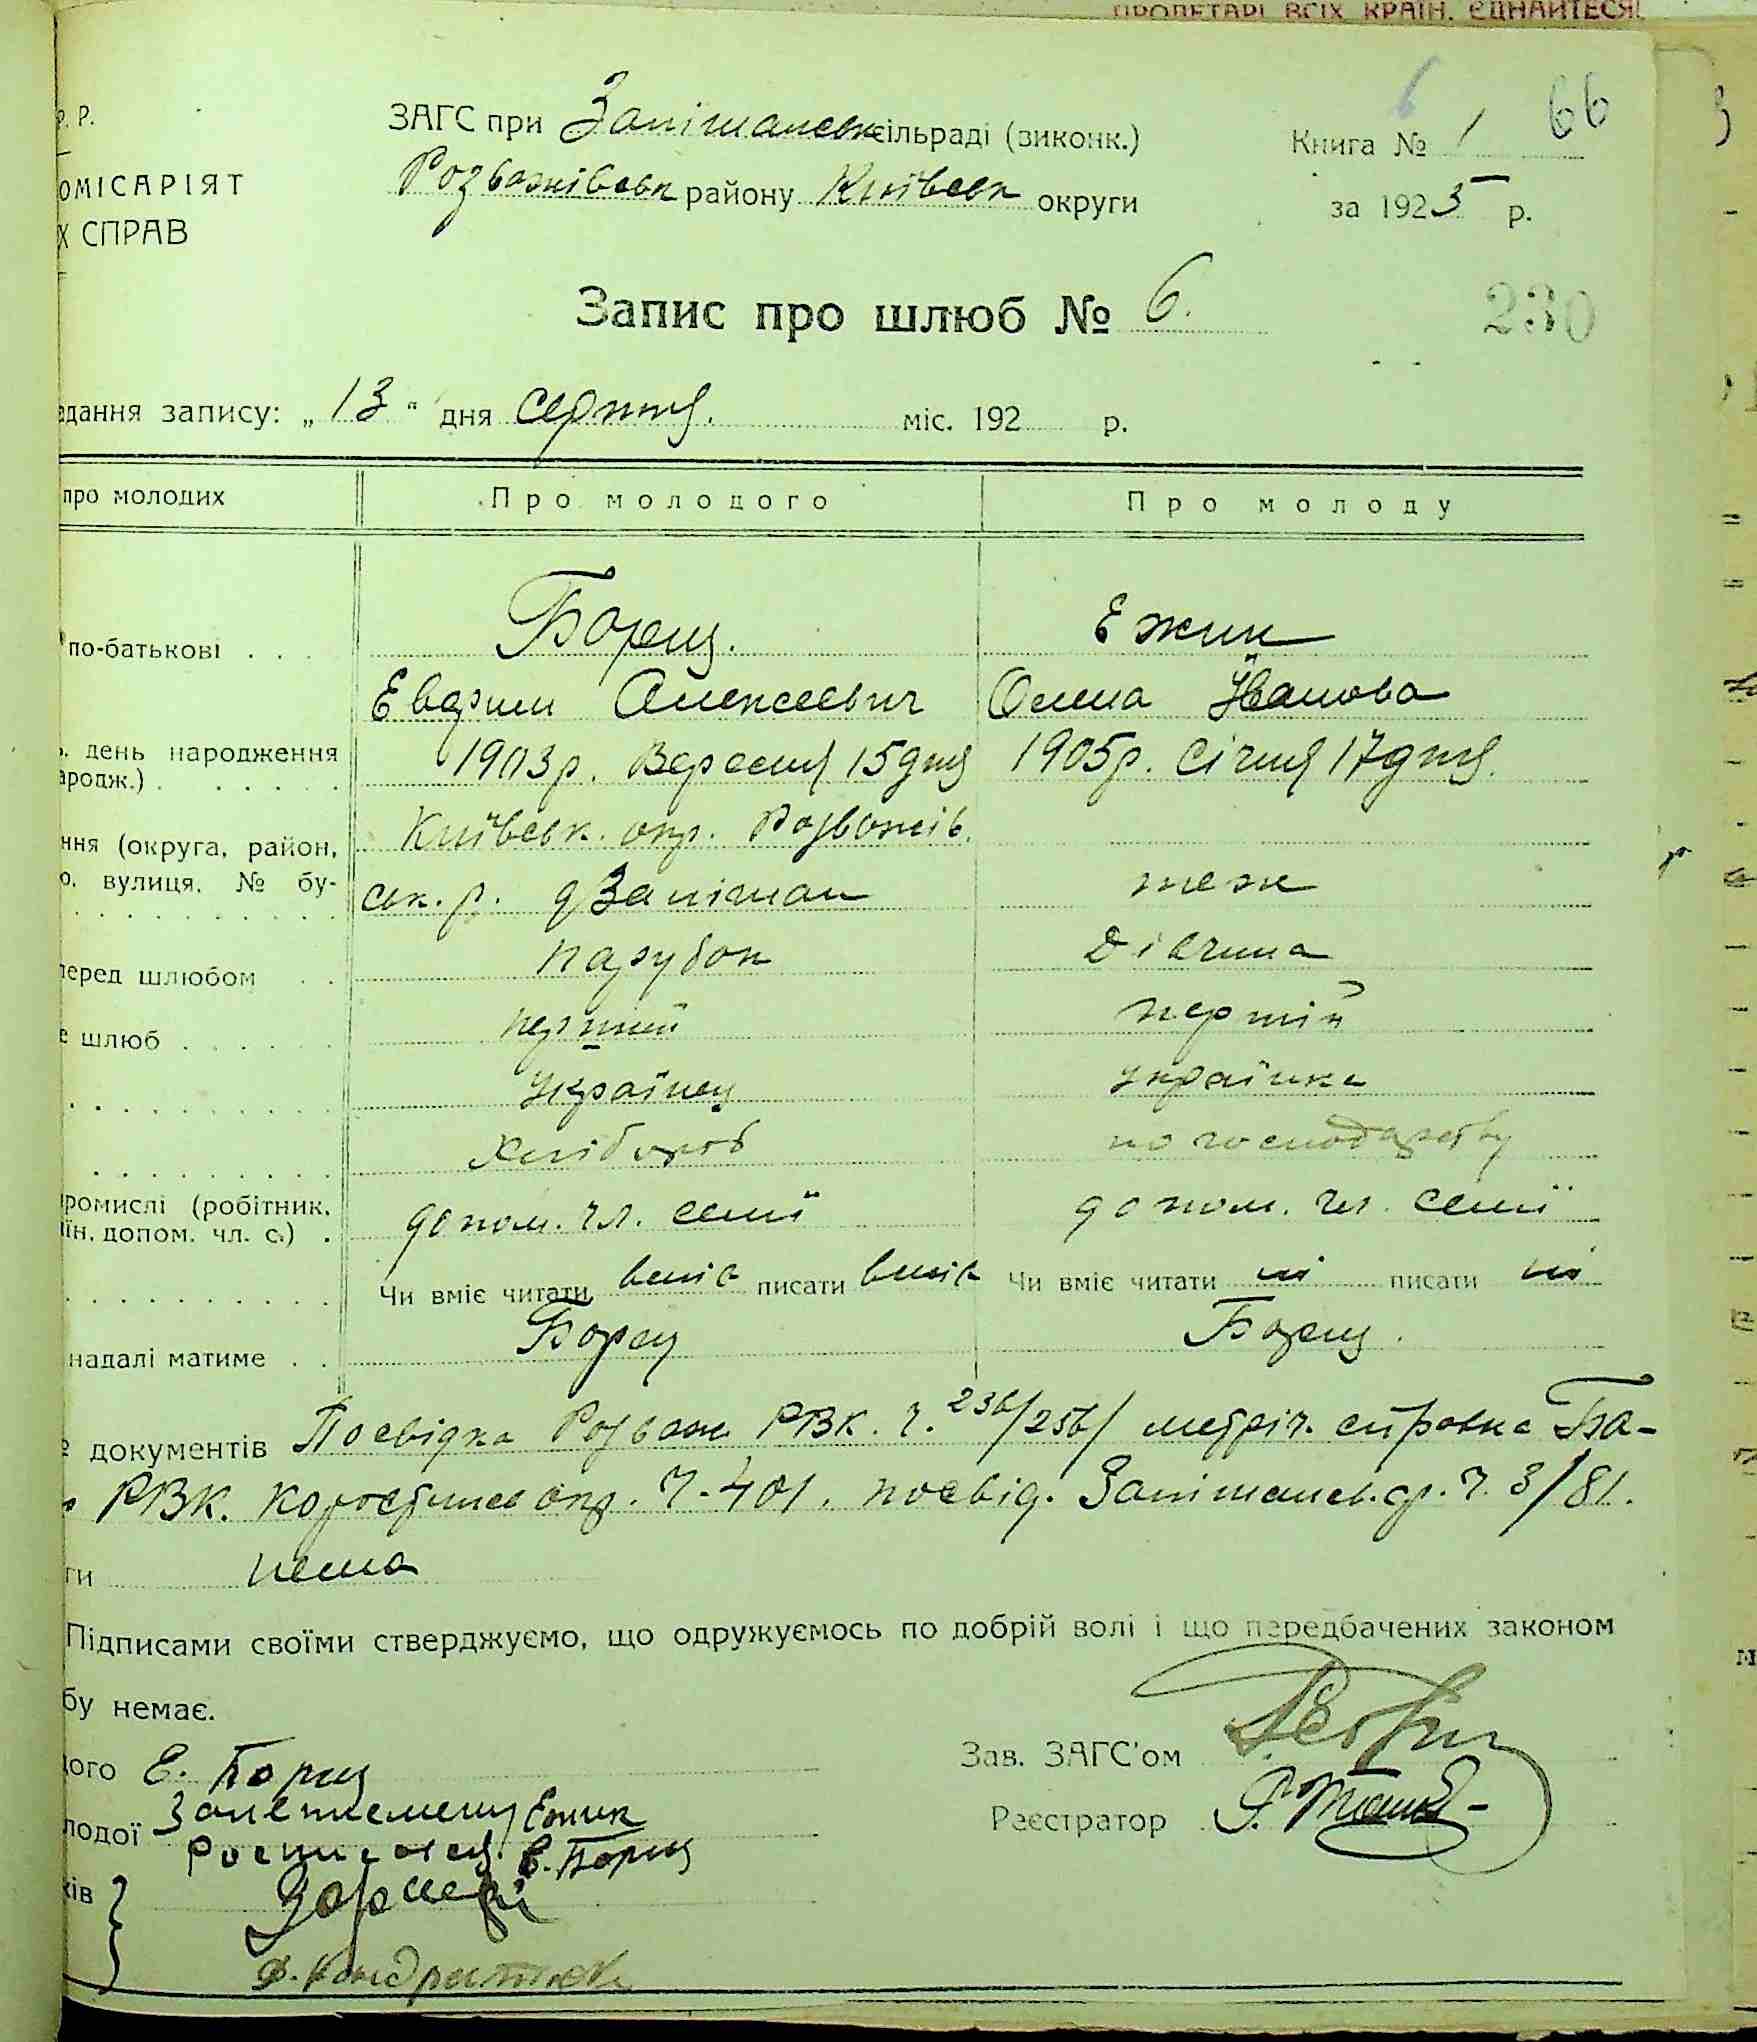 ПРОЛЕТАРІ ВСІХ КРАЇН, ЄДНАЙТЕСЯ!
Р. Р.
ОМІСАРІЯТ
Х СПРАВ
ЗАГС при Запішанськ сільраді (виконк.)
Розважівськ району Київськ округи
6
Книга № 1 66
за 1925 р.
Запис про шлюб № 6.
230
адання запису: „13" дня серпня. міс. 192 р.
про молодих Про молодого Про молоду
по-батькові . . . Борщ. Ежик
Евдрим Алексеевич Олена Иванова
день народження 1903р. Вересня 15дня 1905р. Січня 17дня.
ародж.)
Київськ. окр. Розважів.
ння (округа, район,
о. вулиця. № бу- ськ. р. д Запішан теж
перед шлюбом парубок дівчина
е шлюб перший першій
Українец українка
Хлібороб по господарству
ромислі (робітник, допом. чл. семії допом. чл. семії
їн. допом. чл. с.)
Чи вміє читати вміє писати вміє Чи вміє читати ні писати ні
надалі матиме Борщ Борщ.
документів Посвідка Розваж РВК. ч. 236/256/ метріч. справка Ба-
РВК. Коростинсв окр. ч-401. посвід. Запішансь. ср. ч. 3/81.
ги нема
Підписами своїми стверджуємо, що одружуємось по добрій волі і що передбачених законом
бу немає.
ого Е. Борщ
Зав. ЗАГС'ом
лодої Ежик
Росписался Е. Борщ
Реєстратор
ків
Кондратюк